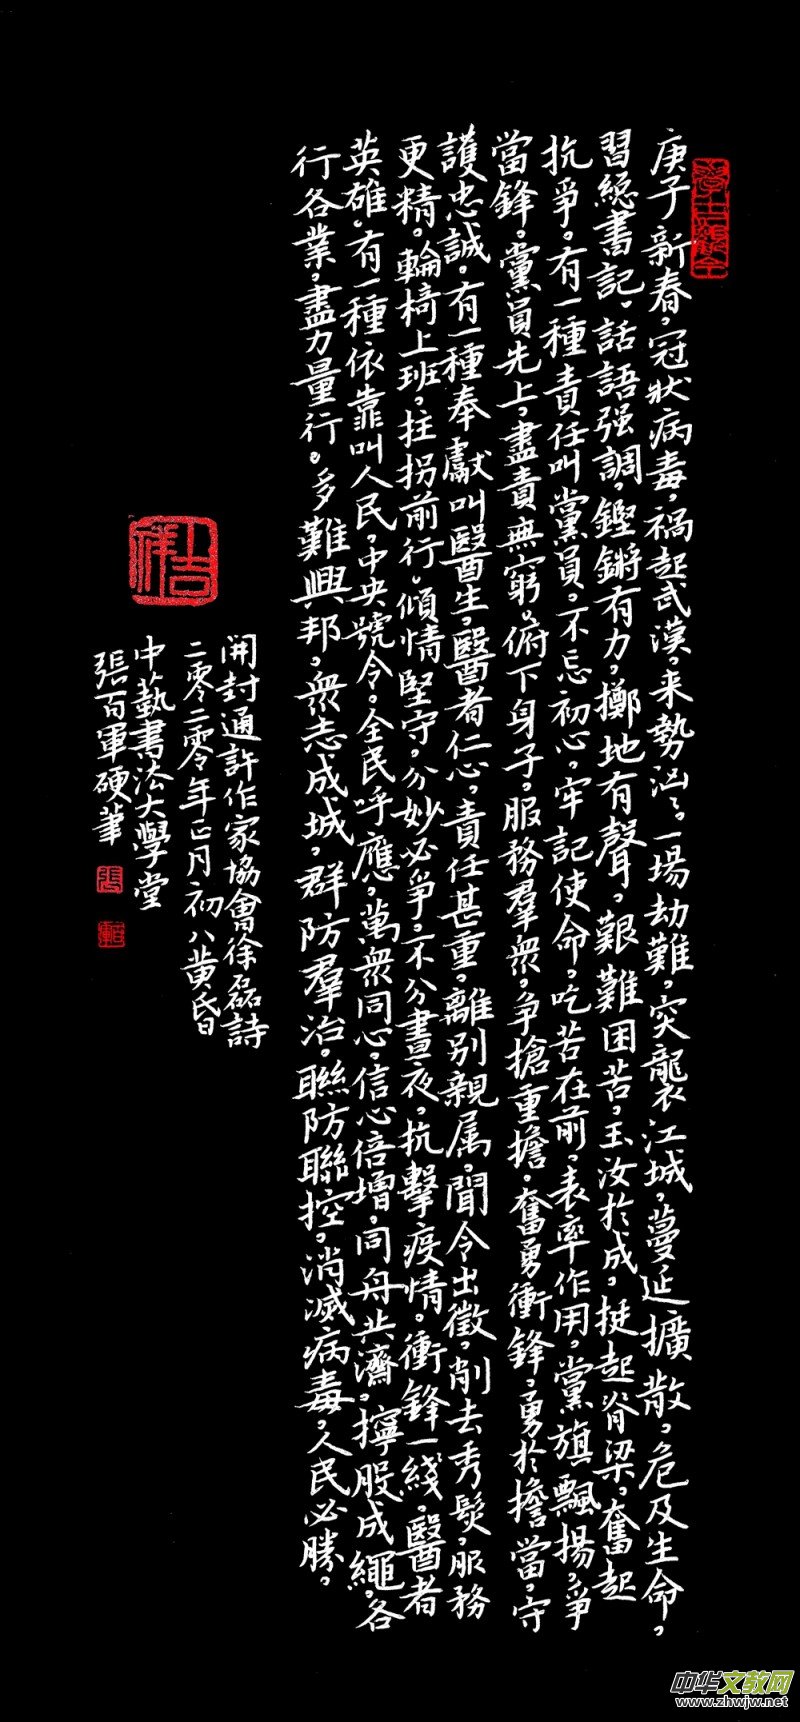 庚子新春，冠狀病毒，禍起武漢，来勢汹々。一場劫難，突襲江城，蔓延擴散，危及生命，
習總書記，話語强調，鏗鏘有力，擲地有聲，艱難困苦，玉汝於成，挺起脊梁，奮起
抗爭。有一種責任叫黨員，不忘初心，牢記使命，吃苦在前，表率作用，黨旗飄揚，爭
當鋒，黨員先上，盡責無窮。俯下身子，服務羣衆，争搶重擔，奮勇衝鋒，勇於擔當，守
護忠誠，有一種奉獻叫醫生，醫者仁心，責任甚重，離别親属，聞令出徵，削去秀髮，服務
更精。輪椅上班，拄拐前行。傾情堅守，分妙必爭，不分晝夜，抗擊疫情。衝鋒一綫，醫者
英雄。有一種依靠叫人民，中央號令。全民呼應，萬衆同心，信心倍增，同舟共濟，擰股成繩，各
行各業，盡力量行。多難興邦，衆志成城，群防羣治，聯防聯控，消滅病毒，人民必勝。
開封通許作家協會徐磊詩
二零二零年正月初八黄昏
中藝書法大學堂
張百軍硬筆
吉祥
張
中华文教网
www.zhwjw.net